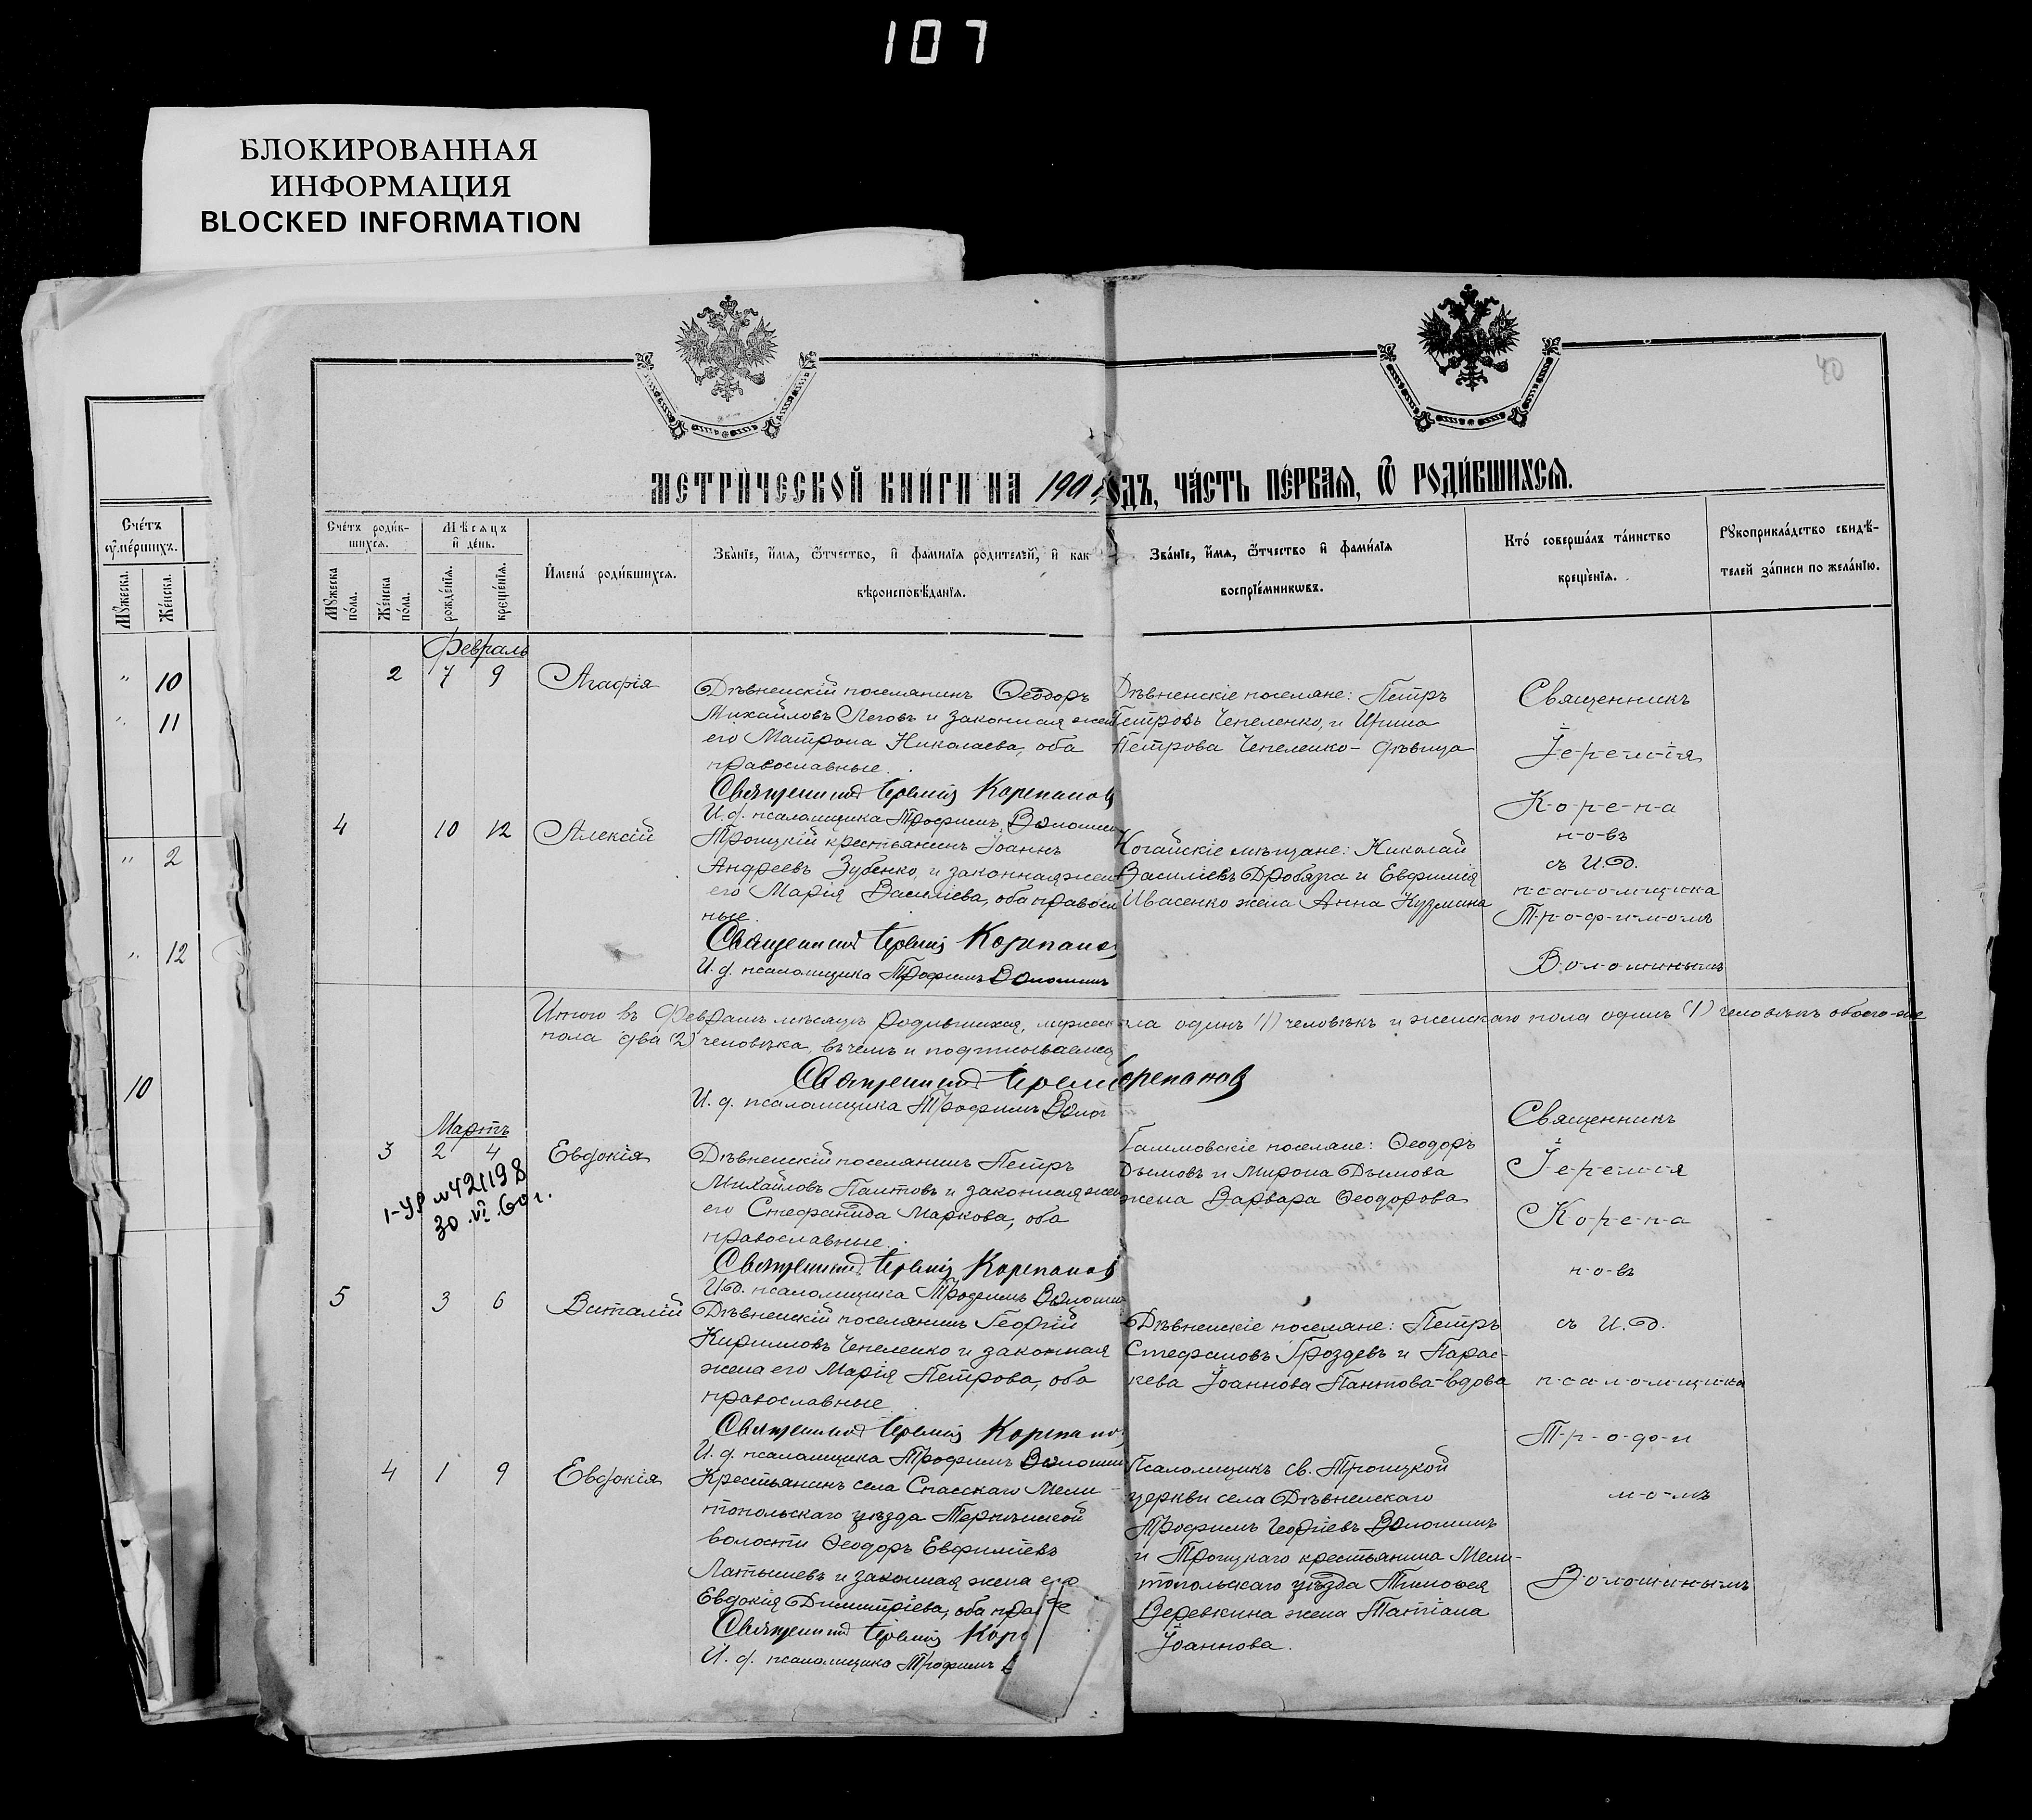 107
БЛОКИРОВАННАЯ
ИНФОРМАЦИЯ
BLOCKED INFORMATION
40
Счетъ
умершихъ.
Мужеска.
Женска.
" 10
" 11
" 2
" 12
10
МЕТРИЧЕСКОЙ КНИГИ НА 190 ОДЪ, ЧАСТЬ ПЕРВАЯ, Ѿ РОДИВШИХСЯ.
Счетъ родив-
шихся.
Мужеска
пола.
Женска
пола.
Мѣсяцъ
и день.
рожденія.
крещенія.
Имена родившихся.
Званіе, имя, ѿтчество, и фамилія родителей, и как
вѣроисповѣданія.
Званіе, имя, ѿтчество и фамилія
воспріемниковъ.
Кто совершалъ таинство
крещенія.
Рукоприкладство свидѣ-
телей записи по желанію.
Февраль
2 7 9 Агафія
Дѣвненскій поселянинъ Ѳеодоръ
Михайловъ Леговъ и законная жен
его Матрона Николаева, оба
православные.
Священникъ Іеремія Корепанов
И. д. псаломщика Трофимъ Волошин
Дѣвненскіе поселяне: Петръ
Петровъ Чепеленко, и Ирина
Петрова Чепеленко - дѣвица
4 10 12 Алексій
Троицкій крестьянинъ Іоаннъ
Андреевъ Зубенко, и законная жен
его Марія Васильева, оба правосла
ные.
Священникъ Іеремія Корепано
И. д. псаломщика Трофимъ Волошинъ
Ногайскіе мѣщане: Николай
Василіевъ Дробязга и Евфимія
Ивасенко жена Анна Кузмина
Священникъ
І-е-р-е-м-і-я
К-о-р-е-п-а
н-о-въ
съ И.д.
п-с-а-л-о-м-щ-и-ка
Т-р-о-ф-и-м-о-мъ
В-о-л-о-ш-и-н-ы-мъ
Итого въ Февралѣ мѣсяцѣ родившихся, мужеск ла одинъ (1) человѣкъ и женскаго пола одинъ (1) человѣкъ обоего-же
пола два (2) человѣка, въ чемъ и подписываемся
Священникъ Іереми репановъ
И. д. псаломщика Трофимъ Волош
Мартъ
3 2 4 Евдокія
1-УР №421198
30.VI.60г.
Дѣвненскій поселянинъ Петръ
Михайловъ Пантовъ и законная жен
его Стефанида Маркова, оба
православные.
Священникъ Іеремія Корепанов
И.д. псаломщика Трофимъ Волоши
Дымовъ и Мирона Дымова
жена Варвара Ѳеодорова
5 3 6 Виталій
Дѣвненскій поселянинъ Георгій
Кирилловъ Чепеленко и законная
жена его Марія Петрова, оба
православные.
Священникъ Іеремія Корепано
И. д. псаломщика Трофимъ Волошин
Дѣвненскіе поселяне: Петръ
Стефановъ Гроздевъ и Парас-
кева Іоаннова Пантова-вдова
4 1 9 Евдокія
Крестьянинъ села Спасскаго Мели-
топольскаго уѣзда
волости Ѳеодоръ Евфиміевъ
Латышевъ и законная жена его
Евдокія Димитріева, оба пра
Священникъ Іеремія Кор
И. д. псаломщика Трофимъ
Псаломщикъ св. Троицкой
церкви села Дѣвненскаго
Трофимъ Георгіевъ Волошинъ
и Троицкаго крестьянина Мели-
топольскаго уѣзда Тимоѳея
Веревкина жена Татіана
Іоаннова.
Священникъ
І-е-р-е-м-і-я
К-о-р-е-п-а
н-о-въ
съ И.д.
п-с-а-л-о-м-щ-и-ка
Т-р-о-ф-и
м-о-мъ
В-о-л-о-ш-и-н-ы-мъ